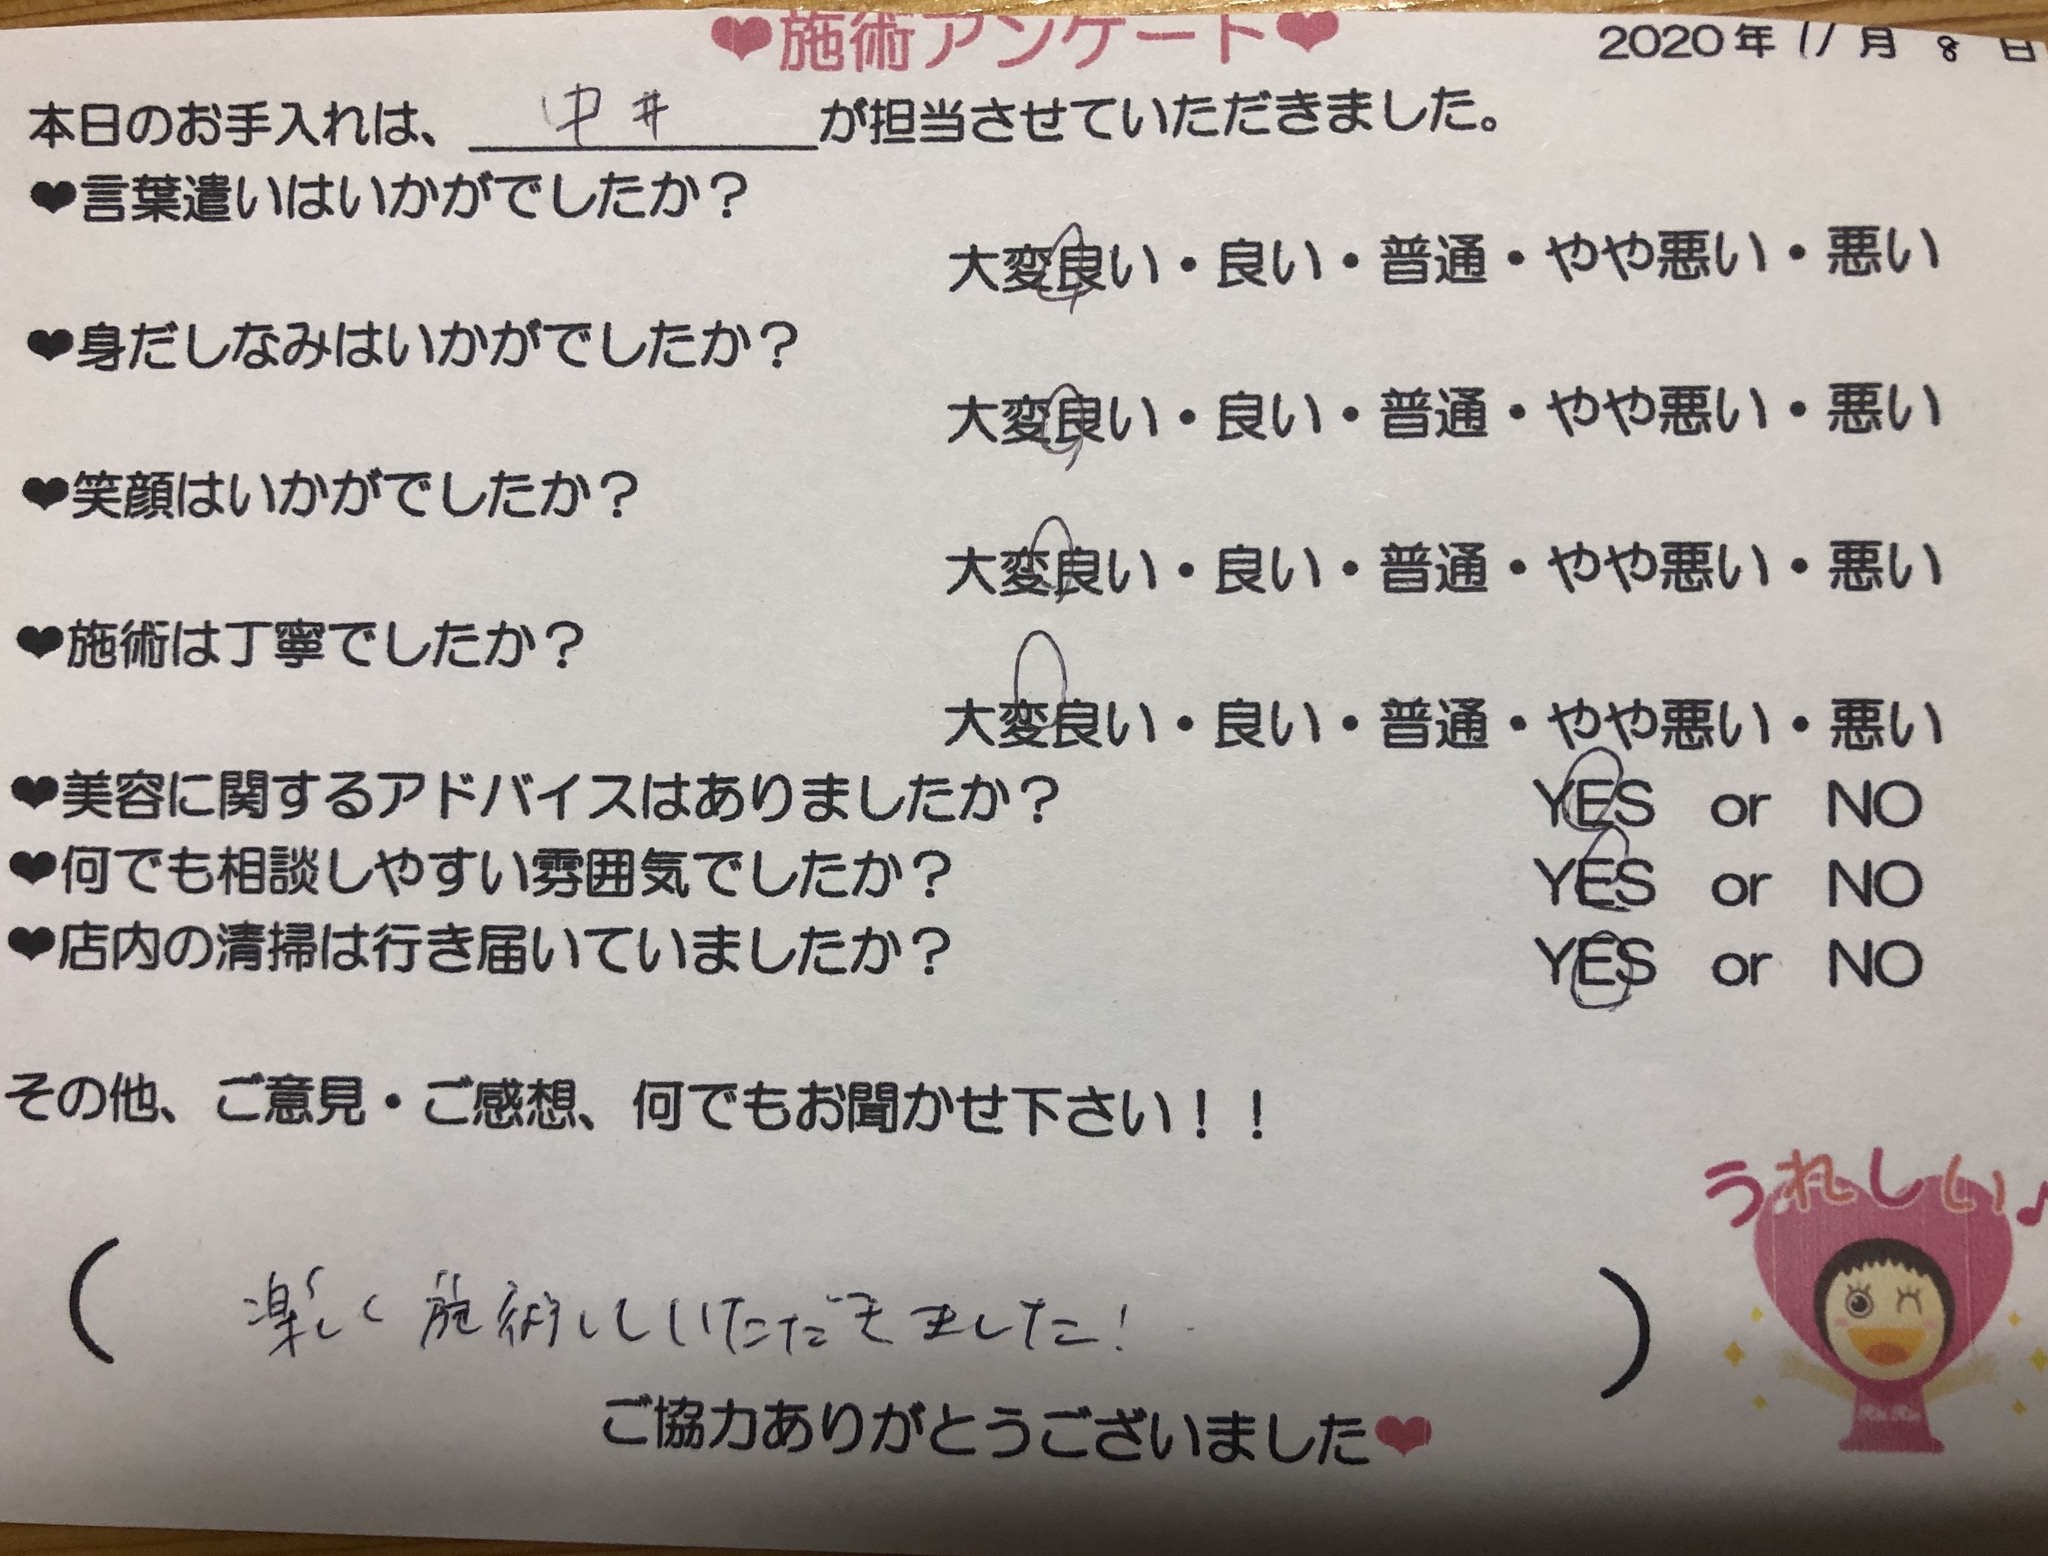 ❤施術アンケート❤ 2020年 11月 8日
本日のお手入れは、 中井 が担当させていただきました。
❤言葉遣いはいかがでしたか？
大変良い・良い・普通・やや悪い・悪い
❤身だしなみはいかがでしたか？
大変良い・良い・普通・やや悪い・悪い
❤笑顔はいかがでしたか？
大変良い・良い・普通・やや悪い・悪い
❤施術は丁寧でしたか？
大変良い・良い・普通・やや悪い・悪い
❤美容に関するアドバイスはありましたか？ YES or NO
❤何でも相談しやすい雰囲気でしたか？ YES or NO
❤店内の清掃は行き届いていましたか？ YES or NO
その他、ご意見・ご感想、何でもお聞かせ下さい！！
うれしい♪
( 楽しく 施術していただきました! )
RinRin
ご協力ありがとうございました❤